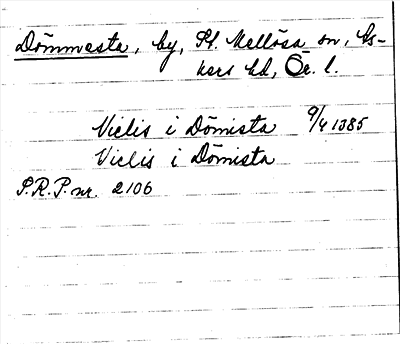 Dömmesta, by, St. Mellösa sn, As-
kers hd, Ör. l.
Niclis i Dömista 9/4 1385
Niclis i Dömista
S.R.P. nr. 2106